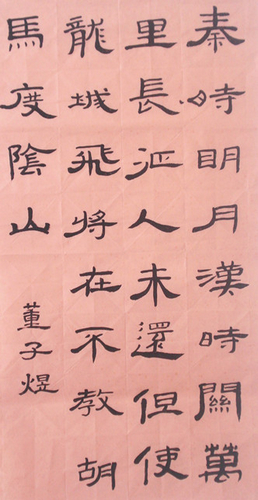 秦時明月漢時關萬
里長征人未還但使
龍城飛將在不教胡
馬度陰山
董子煜